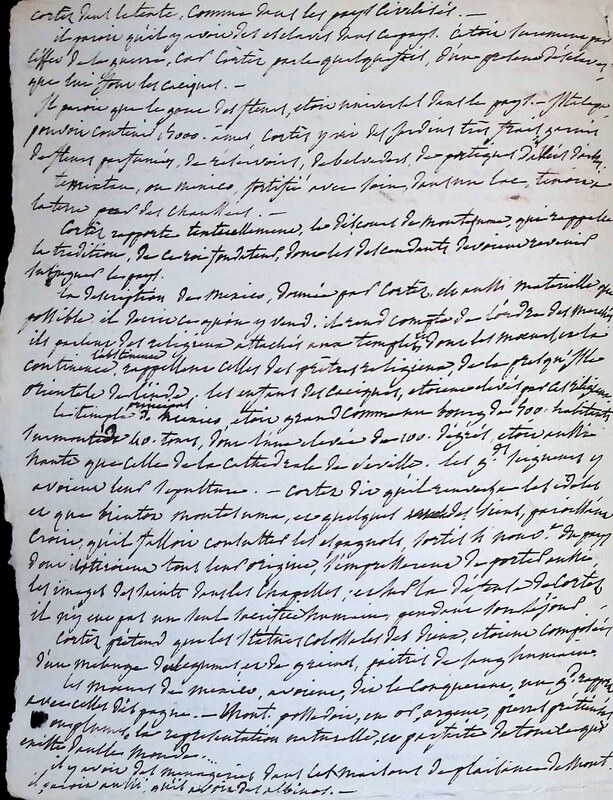 cortès dans le texte, comme dans les pays civilisés. —
il paroit qu'il y avoit des esclaves dans le pays. C'étoit surement par
l'effet de la guerre, car Cortès parle quelquefois, d'un présent d'esclaves,
que lui font les caciques. —
Il paroit que le gout des fleurs, étoit universel dans le pays. —
pouvoir contenir 15000. âmes, Cortès y vit des jardins très frais garnis
de fleurs parfumées, de réservoirs, de belveders, de portiques
ou mexico, fortifié avec soin, dans un lac, tenoit à
la terre par des chaussées. —
Cortès rapporte textuellement, le discours de Montezuma, que rappelle
la tradition, de ce roi fondateur, dont les descendants devoient revenir
subjuguer le pays.
La description de Mexico, donnée par Cortès, est aussi naturelle que
possible. il décrit ce qu'on y vend. il rend compte de l'ordre des marchés
ils parlent des religieux attachés aux temples, dont les moeurs et la
continence, l'abstinence rappellent celles des prêtres religieux, de la presqu'isle
orientale de l'inde. les enfans des caciques, étoient élevés par ces religieux.
le temple principal de mexico, étoit grand comme un bourg de 500. habitants,
surmonté de 40. tours, dont l'une élevée de 100. degrés, étoit aussi
haute que celle de la cathédrale de Séville. les gds seigneurs y
avoient leur sépulture. — Cortès dit qu'il renversa les idoles
et que bientot montezuma, et quelques des siens, paroissant
croire, qu'il falloit consulter les espagnols, sortis
dont tous leur origine, s'empressèrent de porter
les images des saints dans les chapelles, et sur la défense de Cortès
il n'y eut pas un seul sacrifice humain, pendant son séjour
Cortès prétend que les statues colossales des dieux, étoient composées
d'un mélange de légumes et de graines, paîtris de sang humain.
les moeurs de mexico, avoient, dit le conquérant, un gd rapport
avec celles d'espagne. — Mont. possedoit, en or, argent, pierres précieuses
ou plumes, la représentation naturelle, et parfaite de tout ce qui
existe dans le monde. ...
il y avoit des menageries dans les maisons de plaisance de Mont.
il paroit aussi, qu'il a vu des albinos. —